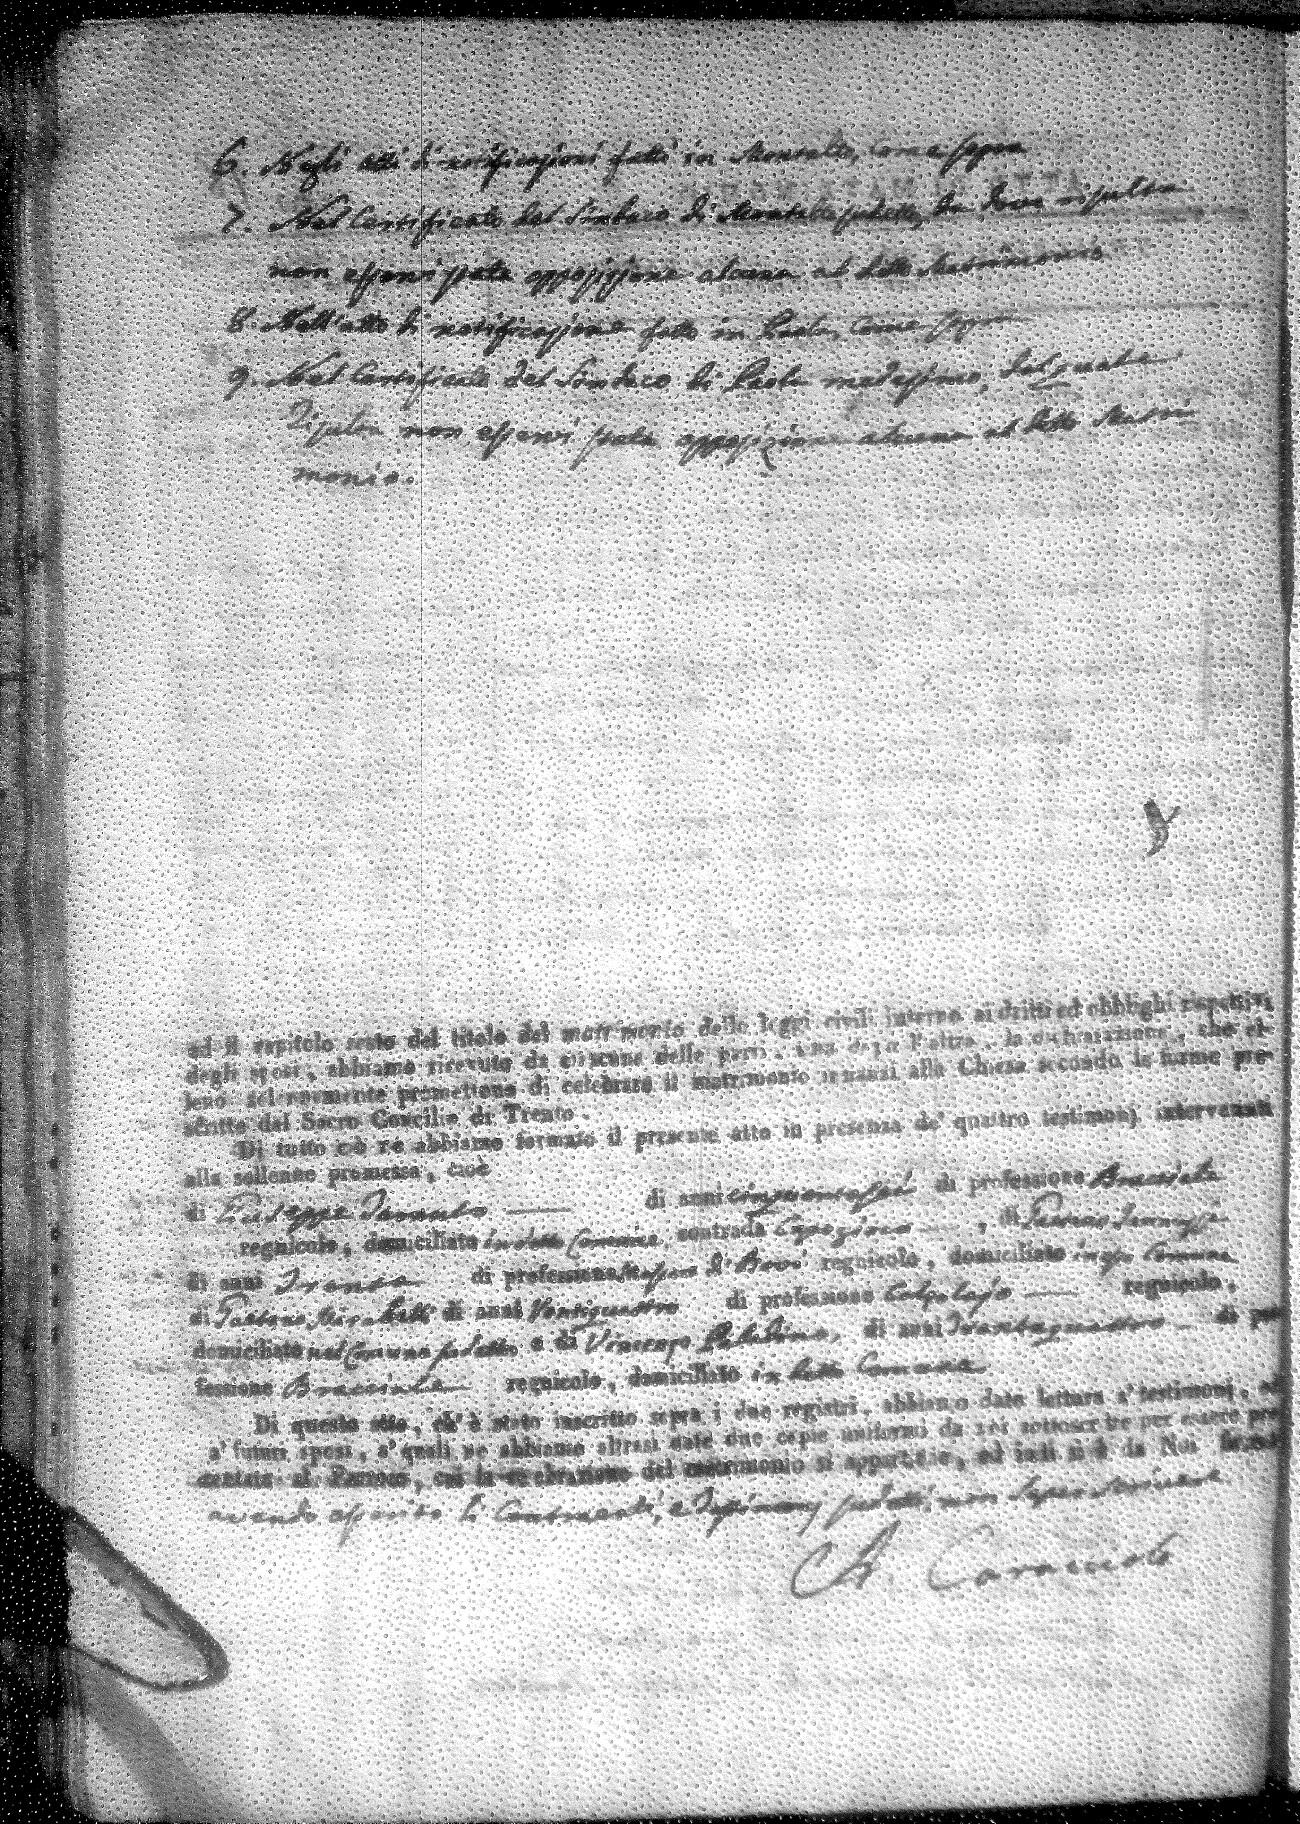 6. Negli atti di notificazioni fatti in Montalto, come sopra
7. Nel Certificato del Sindaco di Montalto sudetto, da dove risulta
non esservi stata opposizione alcuna al detto Matrimonio
8. Nell'atto di notificazione fatto in Paola, come sopra
9. Nel Certificato del Sindaco di Paola medesimo, dal quale
risulta non esservi stata opposizione alcuna al detto Matri
monio.
ed il capitolo sesto del titolo del matrimonio delle leggi civili intorno ai dritti ed obblighi rispettivi
degli sposi, abbiamo ricevuto da ciascuna delle parti, una dopo l'altra, la dichiarazione, che el-
leno solennemente promettono di celebrare il matrimonio innanzi alla Chiesa secondo le forme pre-
scritte dal Sacro Concilio di Trento.
Di tutto ciò ne abbiamo formato il presente atto in presenza de' quattro testimonj intervenuti
alla sollenne promessa, cioè
di Giuseppe Taranto di anni cinquantasei di professione Bracciale
regnicolo, domiciliato in detto Comune, contrada, di
di anni Trenta di professione regnicolo, domiciliato Comune
di Mirabelli di anni Ventiquattro di professione Calzolajo regnicolo,
domiciliato nel Comune sudetto e di Vincenzo Paladino, di anni Trentaquattro di pro
fessione Bracciale regnicolo, domiciliato in detto Comune
Di questo atto, ch'è stato inscritto sopra i due registri, abbiamo dato lettura a' testimonj, ed
a' futuri sposi, a' quali ne abbiamo altresì date due copie uniformi da noi sottoscritte per essere pre
sentate al Parroco, cui la celebrazione del matrimonio si appartiene, ed indi si è da Noi firmato
avendo asserito li Contraenti, e Testimonj sudetti, non saper scrivere
Caracciolo